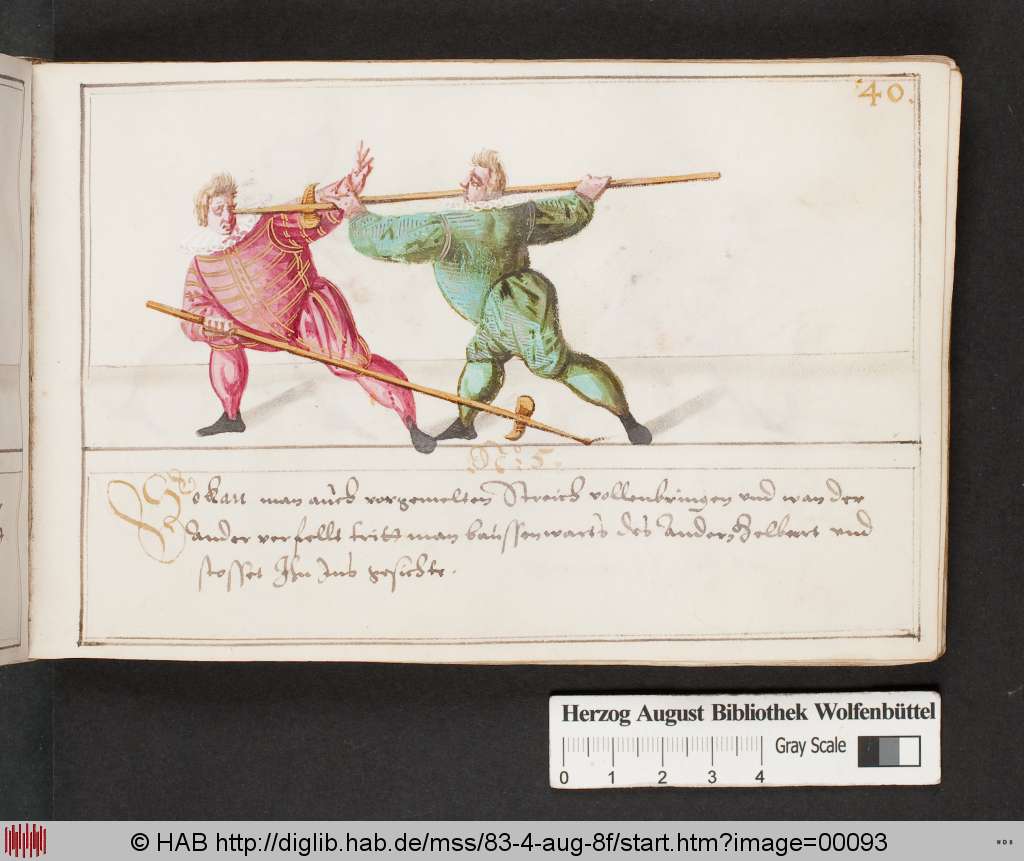 40.
No: 5.
So kan man auch vorgemelten Streich vollenbringen vnd wan der
ander verfellt tritt man baussenwarts des Ander Helbart vnd
stosset Ihn Ins gesichte.
Herzog August Bibliothek Wolfenbüttel
Gray Scale
0 1 2 3 4
© HAB http://diglib.hab.de/mss/83-4-aug-8f/start.htm?image=00093